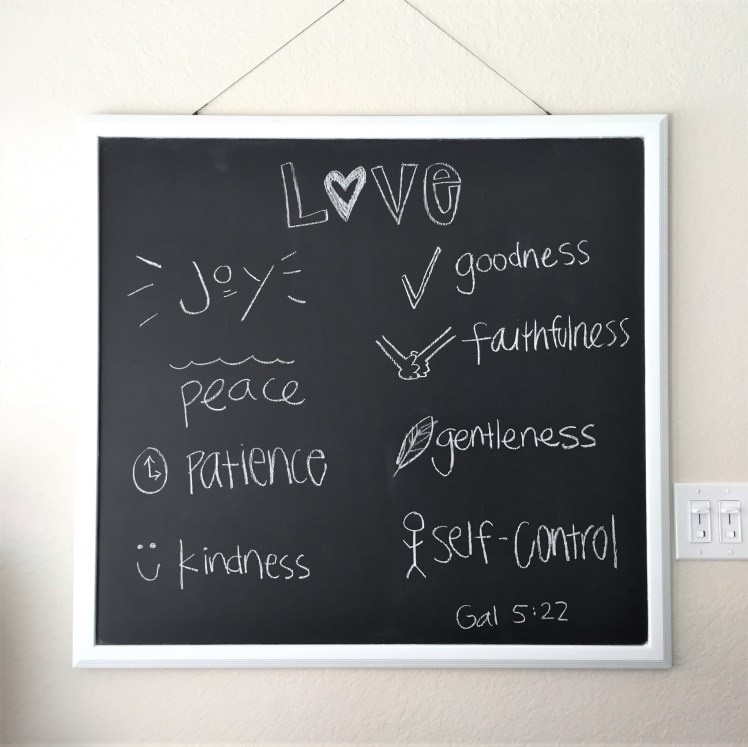 LOVE
Joy
peace
patience
kindness
goodness
faithfulness
gentleness
self-control
Gal 5:22